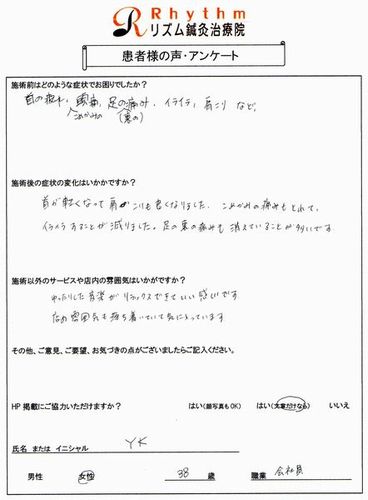 Rhythm
リズム鍼灸治療院
患者様の声・アンケート
施術前はどのような症状でお困りでしたか?
首の疲れ、頭痛、足の痛み、イライラ、肩こり など。
こめかみの (裏の)
施術後の症状の変化はいかがですか?
首が軽くなって肩こりも良くなりました。こめかみの痛みもとれて、
イライラすることが減りました。足の裏の痛みも消えていることが多いです。
施術以外のサービスや店内の雰囲気はいかがですか?
ゆったりした音楽がリラックスできていい感じです
雰囲気も落ち着いていて気に入っています
その他、ご意見、ご要望、お気づきの点がございましたらご記入ください。
HP 掲載にご協力いただけますか? はい(顔写真もOK) はい(文章だけなら) いいえ
氏名 または イニシャル YK
男性 女性 38 歳 職業 会社員